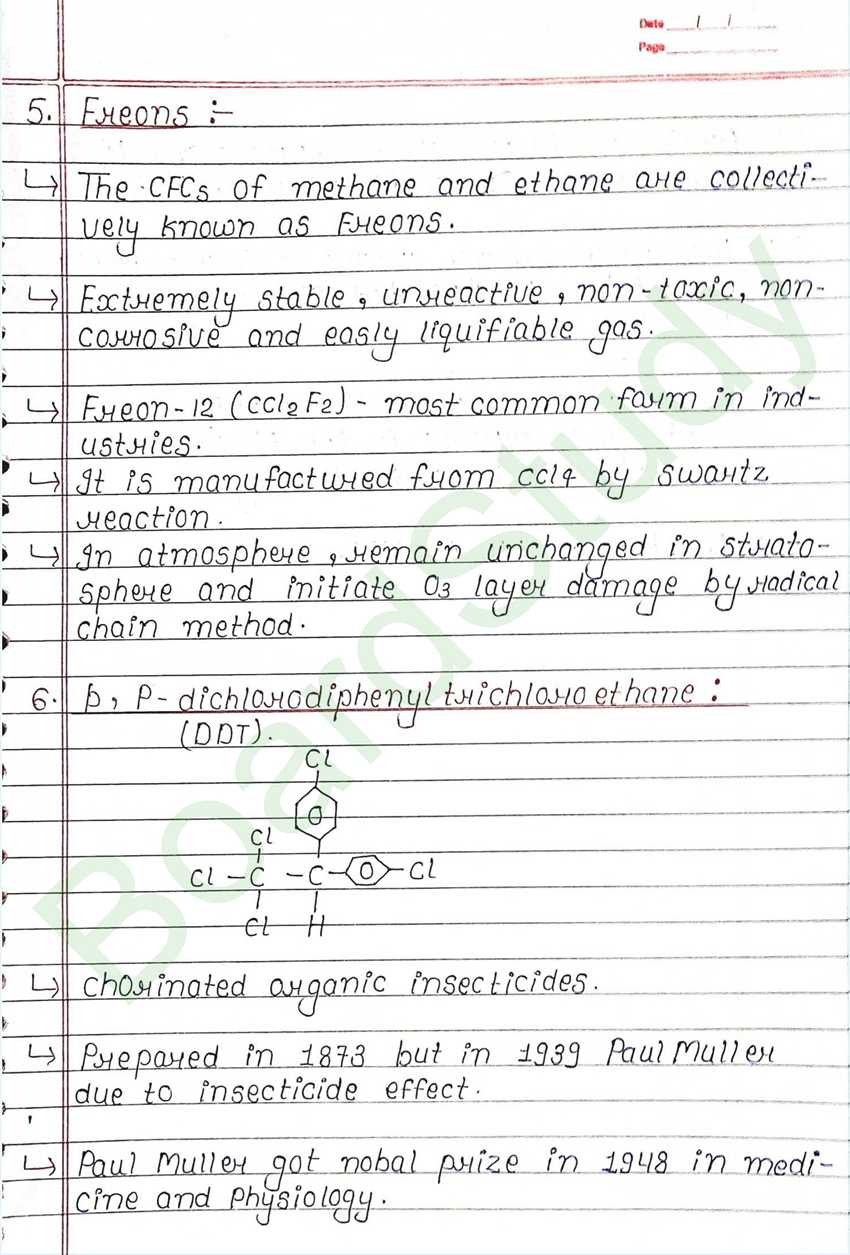 Date / /
Page
5. Freons :-
↳ The CFCs of methane and ethane are collecti-
vely known as Freons.
↳ Extremely stable, unreactive, non-toxic, non-
corrosive and easly liquifiable gas.
↳ Freon-12 (CCl2F2) - most common form in ind-
ustries.
↳ It is manufactured from CCl4 by swartz
reaction.
↳ In atmosphere, remain unchanged in strato-
sphere and initiate O3 layer damage by radical
chain method.
6. p, P-dichlorodiphenyl trichloro ethane :
(DDT).
Cl
O
Cl
Cl - C - C - O - Cl
Cl H
↳ chorinated organic insecticides.
↳ Prepared in 1873 but in 1939 Paul Muller
due to insecticide effect.
↳ Paul Muller got nobal prize in 1948 in medi-
cine and Physiology.
BoardStudy